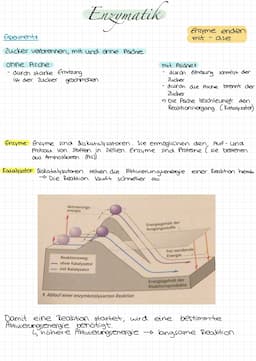 Enzymatik
Enzyme enden
mit - ase
Experiment:
Zucker verbrennen, mit und ohne Asche
ohne Asche:
- durch starke Erhitzung
ist der Zucker geschmolzen
mit Asche:
- durch Erhitzung schmilzt der
Zucker
- durch die Asche brennt der
Zucker
→ Die Asche beschleunigt den
Reaktionsvorgang (Katalysator)
Enzyme: Enzyme sind Biokatalysatoren. Sie ermöglichen den Auf- und
Abbau von Stoffen in Zellen. Enzyme sind Proteine (sie bestehen
aus Aminosäuren (AS))
Katalysator: Biokatalysatoren setzen die Aktivierungsenergie einer Reaktion herab
→ Die Reaktion läuft schneller ab
Aktivierungs-
energie
Energiegehalt der
Ausgangsstoffe
frei werdende
Energie
Reaktionsweg:
ohne Katalysator
mit Katalysator
Energiegehalt der
Reaktionsprodukte
1 Ablauf einer enzymkatalysierten Reaktion
Damit eine Reaktion startet, wird eine bestimmte
Aktivierungsenergie benötigt
↳ höhere Aktivierungsenergie → langsame Reaktion